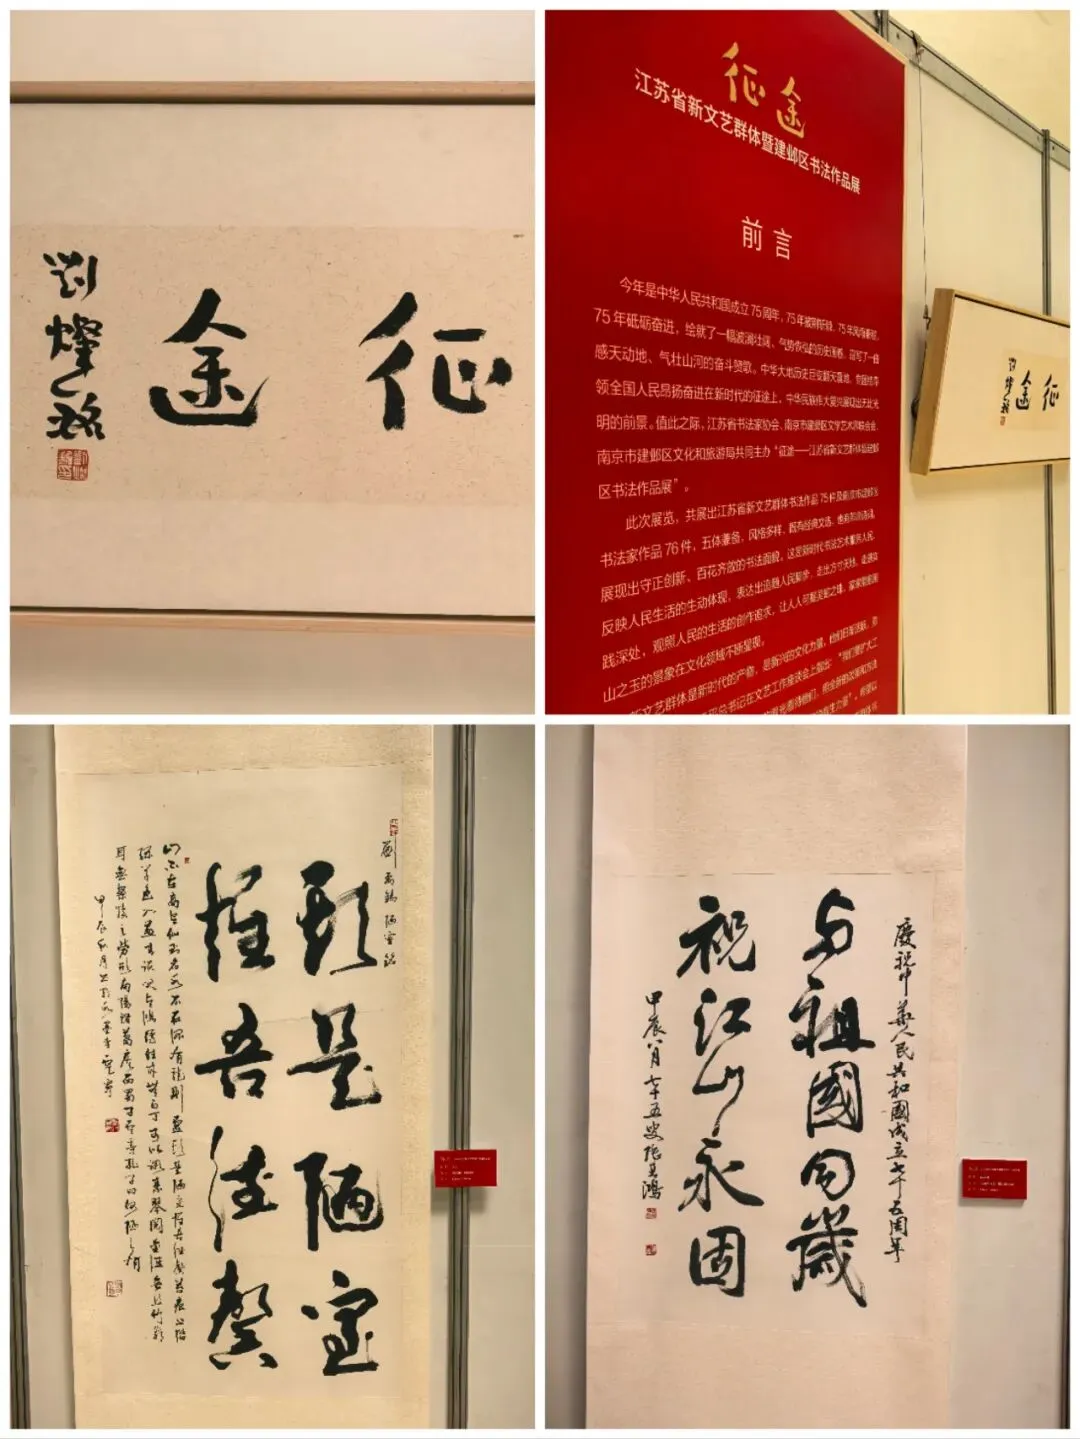 征途
劉燦铭
征途
江苏省新文艺群体暨建邺区书法作品展
前言
今年是中华人民共和国成立75周年，75年披荆斩棘，75年风雨兼程，
75年砥砺奋进，绘就了一幅波澜壮阔、气势恢弘的历史画卷，谱写了一曲
感天动地、气壮山河的奋斗赞歌。中华大地历史巨变翻天覆地，党团结带
领全国人民昂扬奋进在新时代的征途上，中华民族伟大复兴展现出无比光
明的前景。值此之际，江苏省书法家协会、南京市建邺区文学艺术界联合会、
南京市建邺区文化和旅游局共同主办“征途——江苏省新文艺群体暨建邺
区书法作品展”。
此次展览，共展出江苏省新文艺群体书法作品75件及南京市建邺区
书法家作品76件，五体兼备，风格多样，既有经典文选，也有名言诗词，
展现出守正创新、百花齐放的书法面貌，这是新时代书法艺术服务人民、
反映人民生活的生动体现，表达出追随人民脚步，走出方寸天地，走进实
践深处，观照人民的生活的创作追求，让人人可握灵蛇之珠，家家能抱荆
山之玉的景象在文化领域不断显现。
新文艺群体是新时代的产物，是新兴的文化力量，他们日渐活跃，
总书记在文艺工作座谈会上指出：“我们要扩大工
征途
劉燦铭
劉禹锡陋室铭
斯是陋室
惟吾德馨
山不在高有仙则名水不在深有龙则灵斯是陋室惟吾德馨苔痕上阶
绿草色入帘青谈笑有鸿儒往来无白丁可以调素琴阅金经无丝竹乱
耳无案牍之劳形南阳诸葛庐西蜀子云亭孔子曰何陋之有
慶祝中華人民共和國成立七十五周年
与祖國同歲
祝江山永固
甲辰八月七十五叟